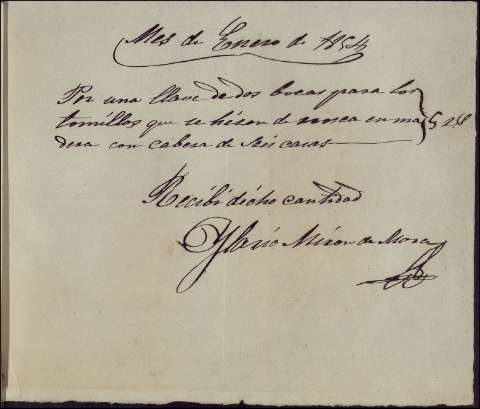 Mes de Enero de 1854
Por una llave de dos bocas para los
tornillos que se hisen de rosca en ma
dera con cabesa de seis caras
Recibi dicho cantidad
Ylario Miron de Mora